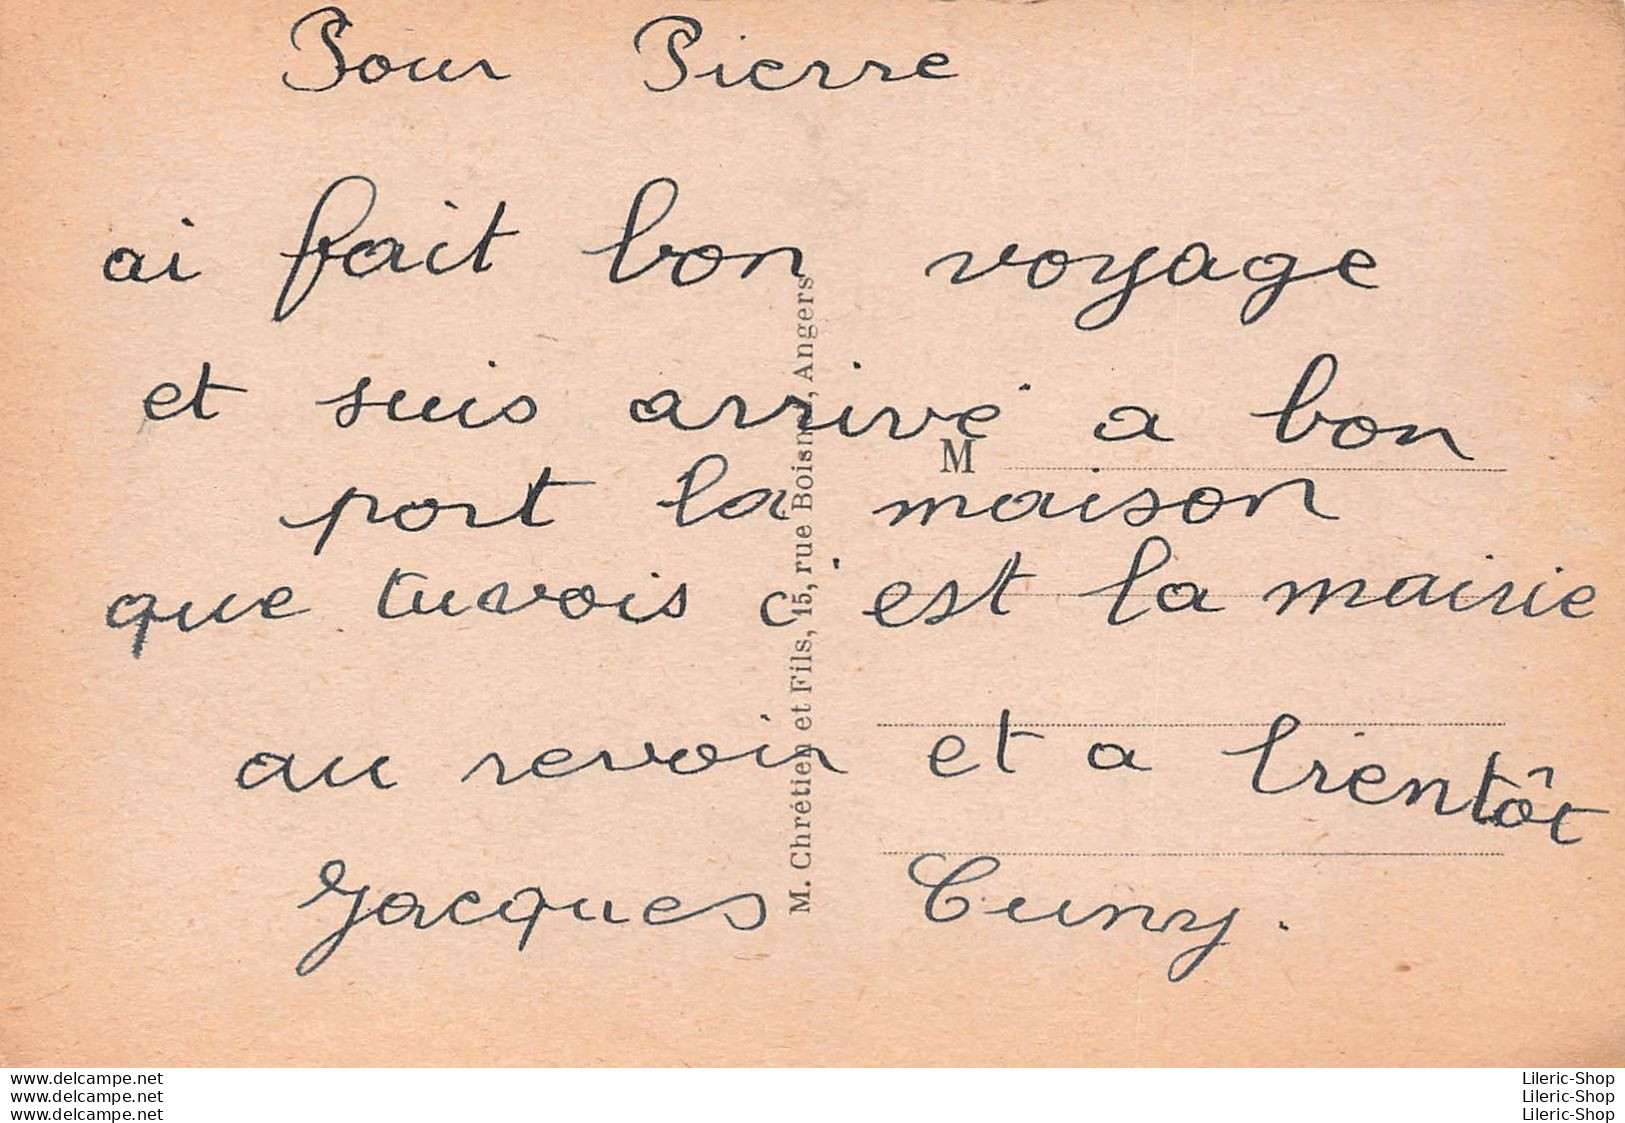 Pour Pierre
ai fait bon voyage
et suis arrivé a bon
port la maison
que tuvois c'est la mairie
au revoir et a bientôt
Jacques Cuny.
M
M. Chrétien et Fils, 15, rue Boisn , Angers
www.delcampe.net
www.delcampe.net
www.delcampe.net
Lileric-Shop
Lileric-Shop
Lileric-Shop